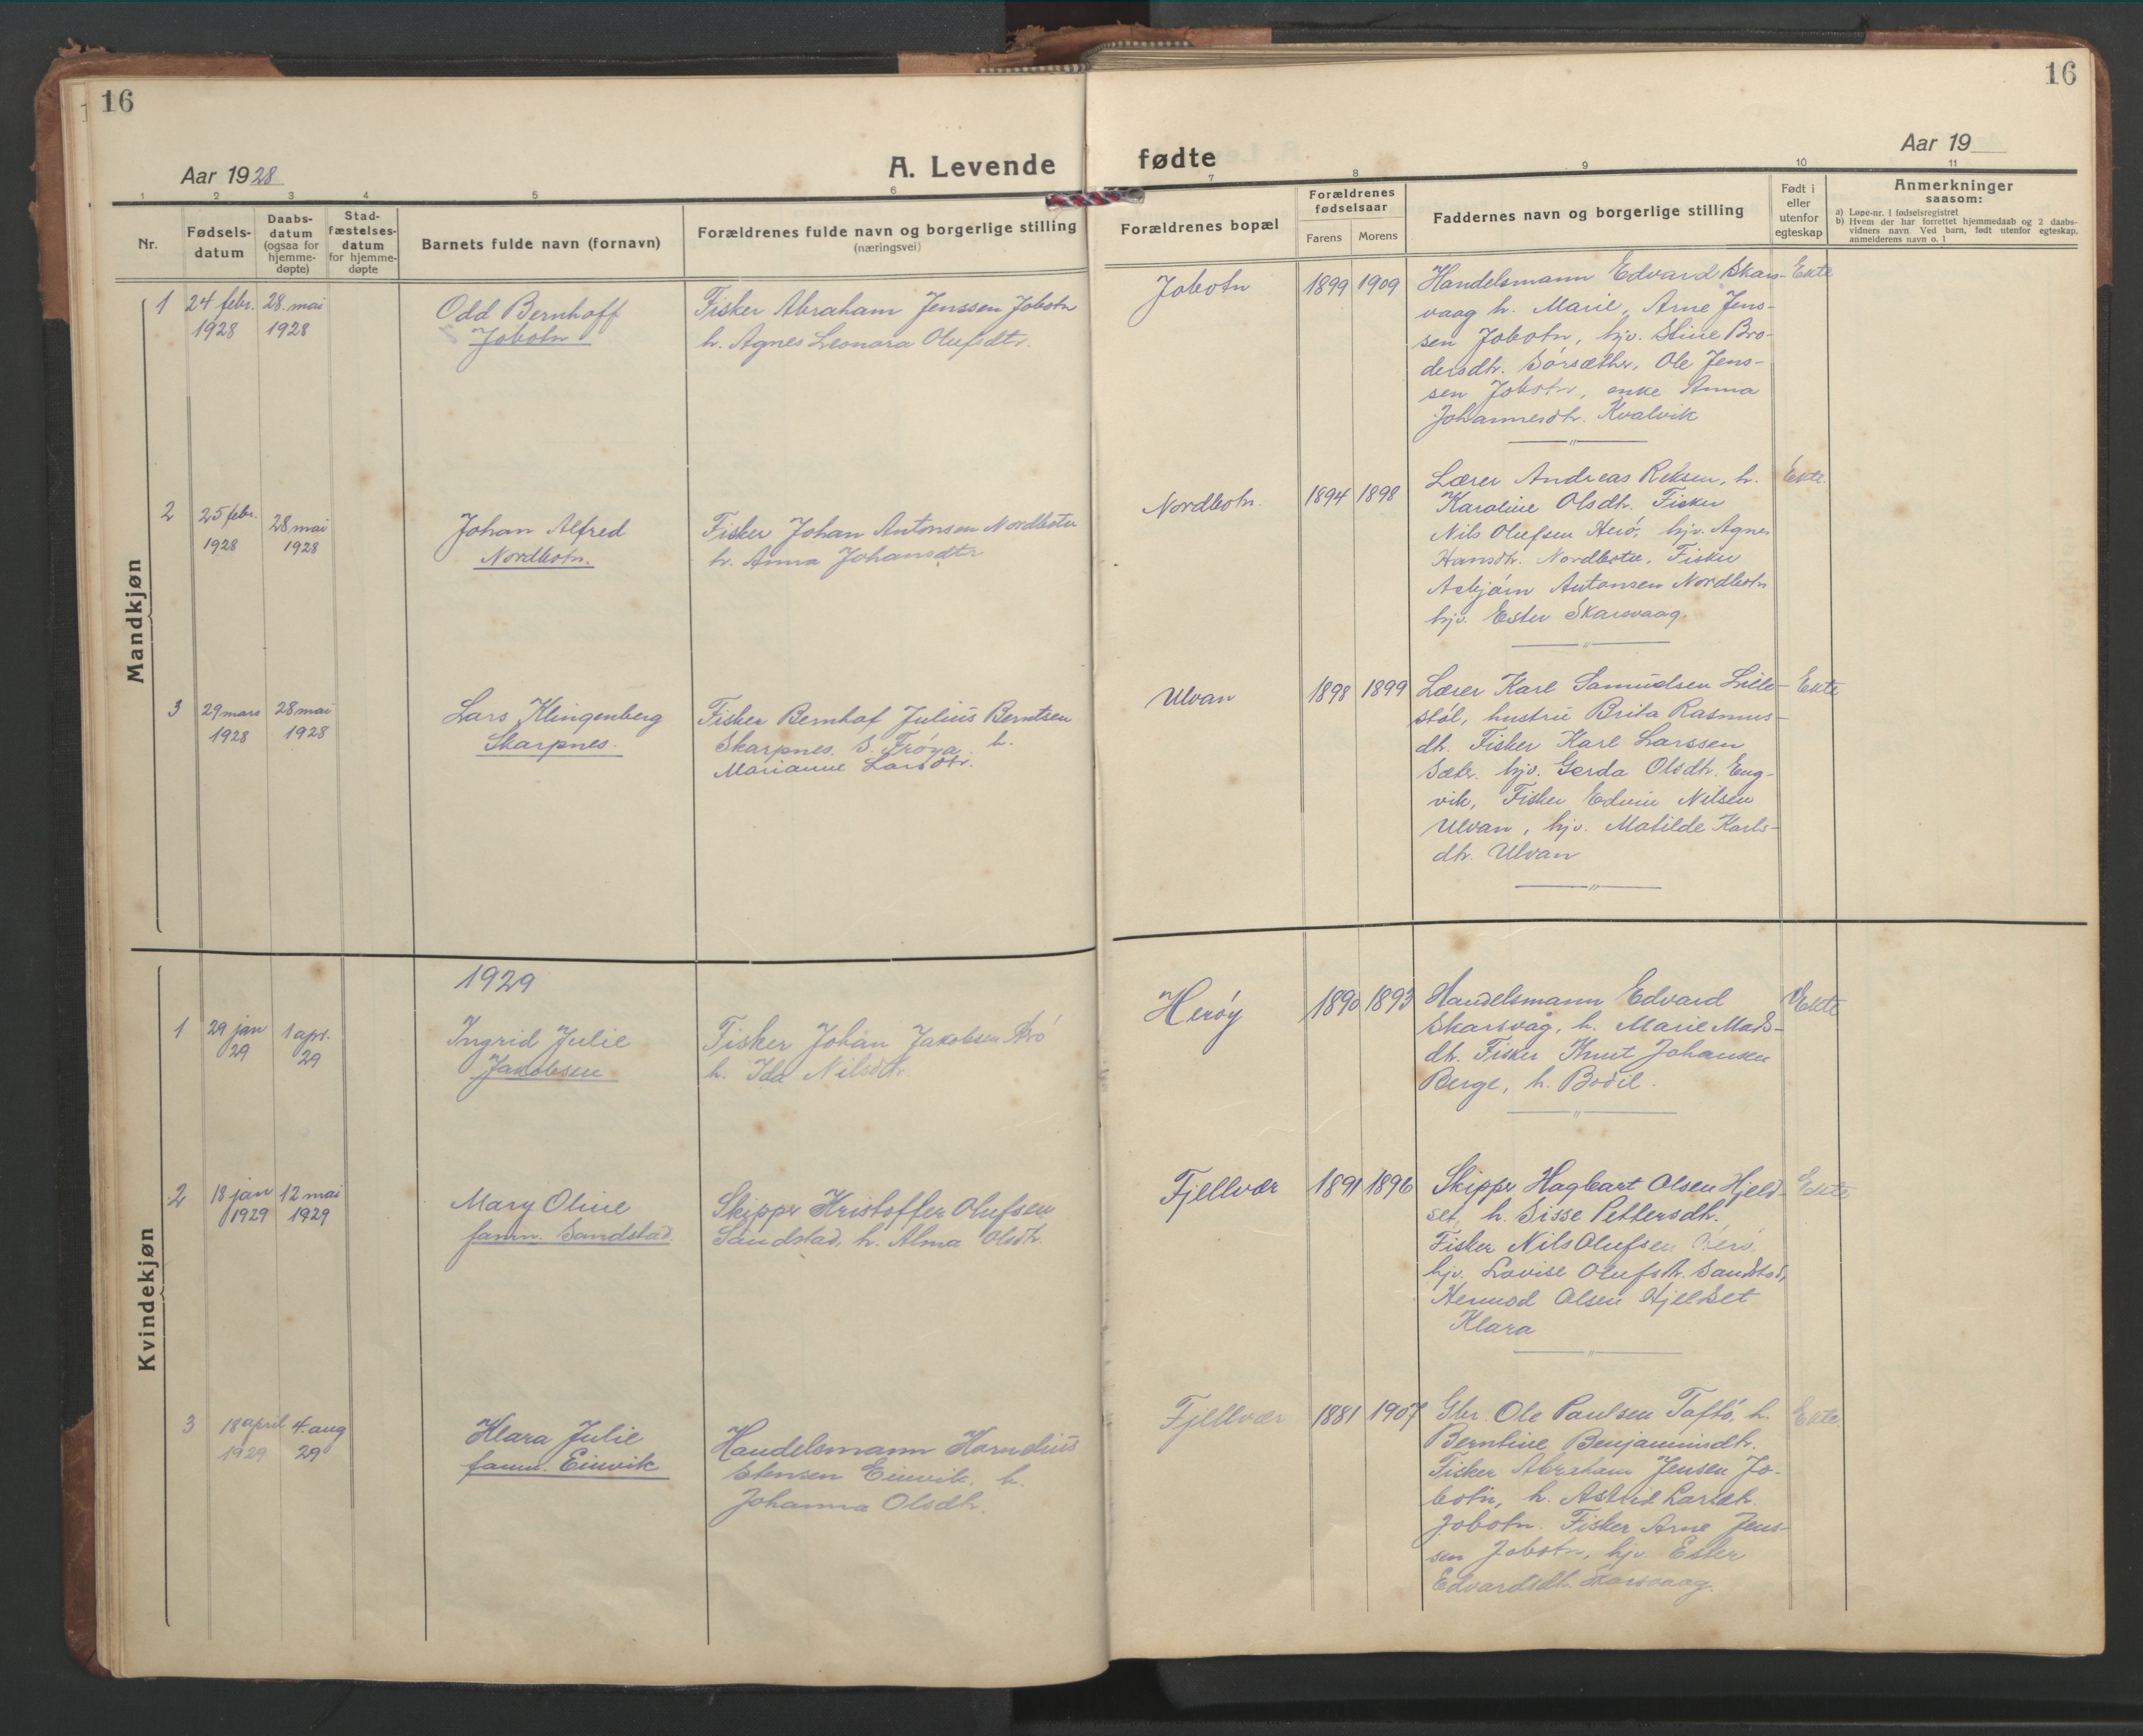 16
Aar 1928
A. Levende
1
2
3
4
5
6
Nr.
Fødsels-
datum
Daabs-
datum
(ogsaa for
hjemme-
døpte)
Stad-
fæstelses-
datum
for hjemme-
døpte
Barnets fulde navn (fornavn)
Forældrenes fulde navn og borgerlige stilling
(næringsvei)
Mandkjøn
1
24 febr.
1928
28. mai
1928
Odd Bernhoff
Jobotn
Fisker Abraham Jenssen Jobotn
h. Agnes Leonora Olufsdtr.
2
25 febr.
1928
28 mai
1928
Johan Alfred
Nordbotn.
Fisker Johan Antonsen Nordbotn
h. Anna Johansdtr
3
29 mars
1928
28 mai
1928
Lars Klingenberg
Skarpnes.
Fisker Bernhof Julius Berntsen
Skarpnes. S. Frøya. h.
Marianne Larsdtr.
Kvindekjøn
1929
1
29 jan
29
1 apr.
29
Ingrid Julie
Jakobsen
Fisker Johan Jakobsen
h. Ida Nilsdtr.
2
18 jan
1929
12 mai
1929
Mary Oline
famn. Sandstad.
Skipper Kristoffer Olufsen
Sandstad. h. Alma Olsdtr.
3
18 april
1929
4. aug
29
Klara Julie
famn. Einvik
Handelsmann Kornelius
Stensen Einvik. h.
Johanna Olsdtr.
16
Aar 19
fødte
7
8
9
10
11
Forældrenes bopæl
Forældrenes
fødselsaar
Farens
Morens
Faddernes navn og borgerlige stilling
Født i
eller
utenfor
egteskap
Anmerkninger
saasom:
a) Løpe-nr. i fødselsregistret
b) Hvem der har forrettet hjemmedaab og 2 daabs-
vidners navn. Ved barn, født utenfor egteskap,
anmelderens navn o. l
Jobotn
1899
1909
Handelsmann Edvard Skars-
vaag h. Marie, Arne Jens-
sen Jobotn, hjv. Stine Bro-
dersdtr. Sörsæther, Ole Jens-
sen Jobotn, enke Anna
Johannesdtr. Kvalvik
Ekte
Nordbotn.
1894
1898
Lærer Andreas Reksen, h.
Karoline Olsdtr. Fisker
Nils Olufsen Herö, hjv. Agnes
Hansdtr. Nordbotn, Fisker
Asbjörn Antonsen Nordbotn
hjv. Ester Skarsvaag.
Ekte.
Ulvan
1898
1899
Lærer Karl Samuelsen Lille-
stöl, hustru Brita Rasmus-
dtr. Fisker Karl Larssen
Sætr. hjv. Gerda Olsdtr. Eng-
vik, Fisker Edvin Nilsen
Ulvan, hjv. Matilde Karls-
dtr. Ulvan
Ekte
Herøy
1890
1893
Handelsmann Edvard
Skarsvåg, h. Marie Mads-
dtr. Fisker Knut Johansen
Berge, h. Bodil.
Ekte
Fjellvær
1891
1896
Skipper Hagbart Olsen Hjeld-
set, h. Sisse Pettersdtr.
Fisker Nils Olufsen Herö,
hjv. Lovise Olufsdtr. Sandstad,
Hermod Olsen Hjeldset
Klara
Ekte
Fjellvær
1881
1907
Gbr. Ole Paulsen Taftö, h.
Berntine Benjaminsdtr.
Fisker Abraham Jensen Jo-
botn, h. Astrid Larsdtr.
Jobotn. Fisker Arne Jens-
sen Jobotn, hjv. Ester
Edvardsdtr. Skarsvaag.
Ekte.